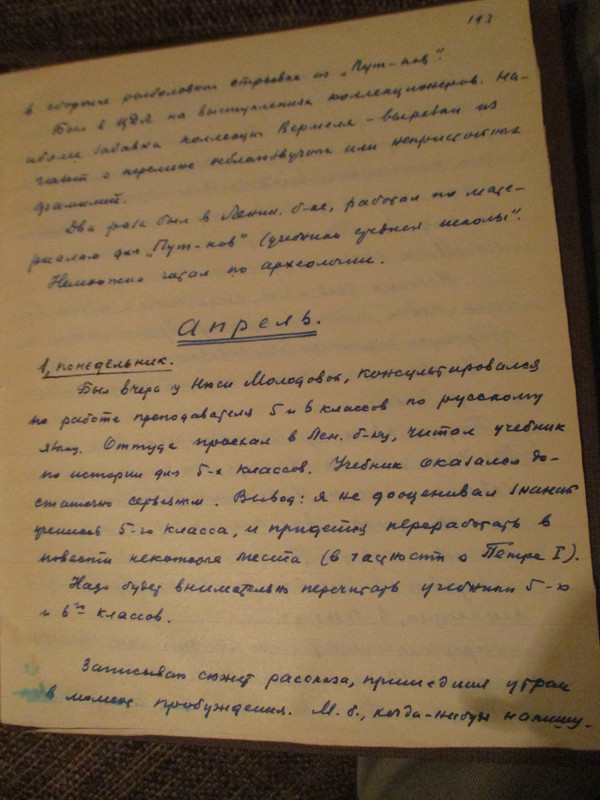 113
в сборнике отрывка из „Пут-ков“.
Был в ЦДЛ на выступлениях коллекционеров. На-
иболее забавна коллекция Вермеля – вырезки из
газет о перемене неблагозвучных или неприличных
фамилий.
Два раза был в Ленин. б-ке, работал по мате-
риалам для „Пут-ков“ (учебники средней школы“.
Немножко читал по археологии.
Апрель.
1, понедельник.
Был вчера у Нюси Молодовой, консультировался
по работе преподавателя 5 и 6 классов по русскому
языку. Оттуда проехал в Лен. б-ку, читал учебник
по истории для 5-х классов. Учебник оказался до-
статочно серьезным. Вывод: я не дооценивал знаний
учеников 5-го класса, и придется переработать в
повести некоторые места (в частности о Петре I).
Надо будет внимательно перечитать учебники 5-х
и 6-х классов.
Записываю сюжет рассказа, пришедший утром
в момент пробуждения. М. б., когда-нибудь напишу.